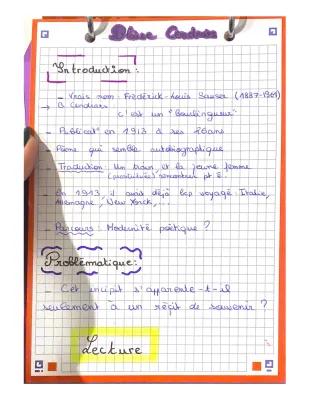 Blaise Cendrars
Introduction :
- Vrais nom : Frédérick-Louis Sauser (1887-1961)
→ B. Cendrars
c'est un "Bourlingueur"
- Publicat° en 1913 à ses 26ans
- Poème qui semble autobiographique
- Traduction : Un train, et la jeune femme
(prostituée) remontent pt ê.
- En 1913, il avait déjà bcp voyagé : Italie,
Allemagne, New York,...
- Parcours : Modernité poétique ?
Problématique :
- Cet incipit s'apparente-t-il
seulement à un récit de souvenir ?
Lecture